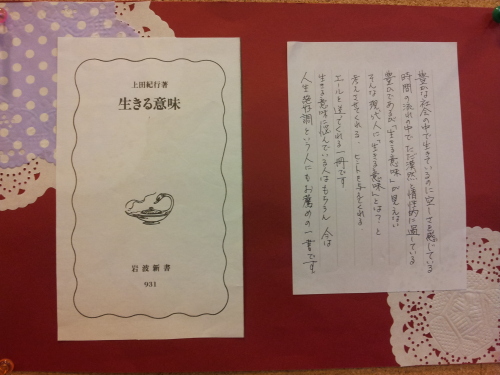 上田紀行著
生きる意味
岩波新書
931
豊かな社会の中で生きているのに空しさを感じている
時間の流れの中でただ漠然と惰性的に過している
豊かであるが「生きる意味」が見えない
そんな現代人に「生きる意味」とは？と
考えさせてくれる、ヒントを与えてくれる
エールを送ってくれる一冊です
生きる意味に悩んでいる人はもちろん、今は
人生絶好調という人にもお薦めの一書です。